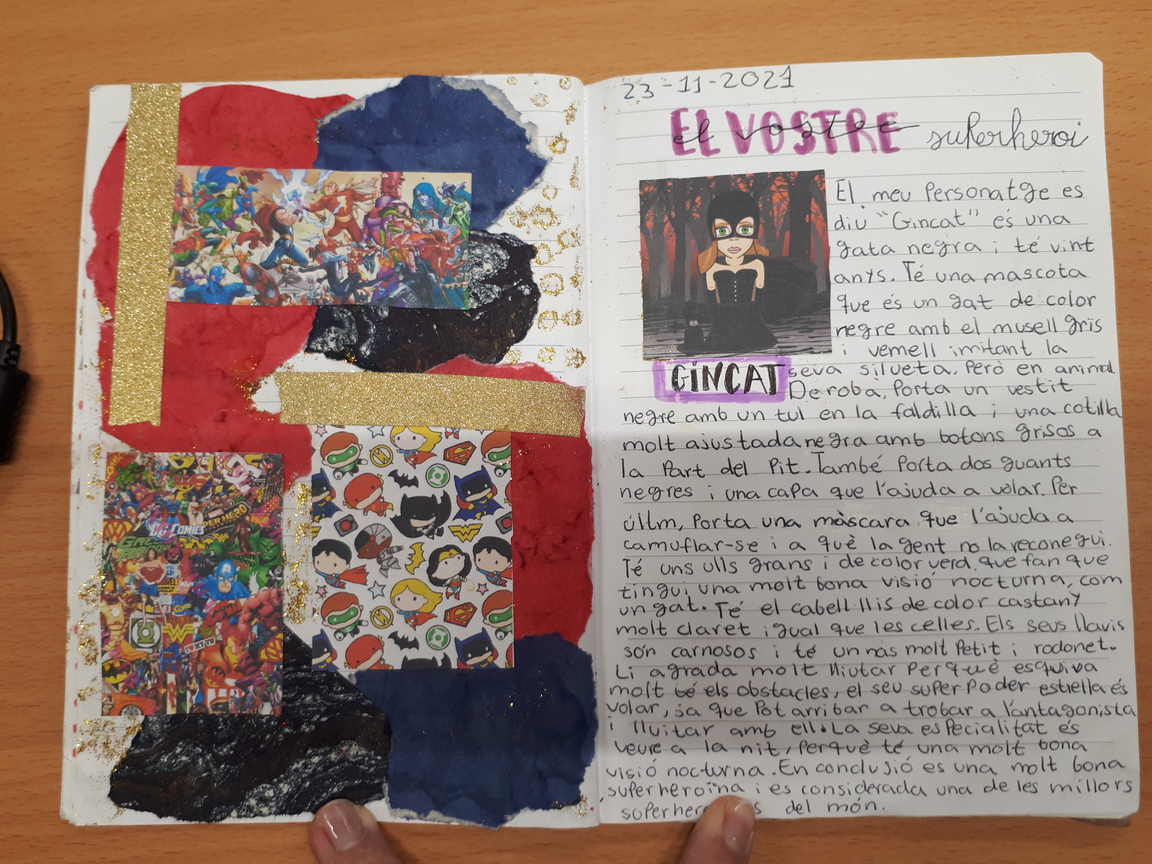 23-11-2021
EL VOSTRE
el vostre superheroi
El meu Personatge es
diu "Gincat" és una
gata negra i té vint
anys. Té una mascota
que és un gat de color
negre amb el musell gris
i vermell imitant la
seva silueta. Però en animal
GINCAT
De roba, Porta un vestit
negre amb un tul en la faldilla i una cotilla
molt ajustada negra amb botons grisos a
la Part del Pit. També Porta dos guants
negres i una capa que l'ajuda a volar. Per
últm, Porta una màscara que l'ajuda a
camuflar-se i a què la gent no la reconegui.
Té uns ulls grans i de color verd que fan que
tingui una molt bona visió nocturna, com
un gat. Té el cabell llis de color castany
molt claret igual que les celles. Els seus llavis
són carnosos i té un nas molt Petit i rodonet.
Li agrada molt lluitar Perquè esquiva
molt bé els obstacles, el seu super Poder estrella és
volar, ja que Pot arribar a trobar a l'antagonista
i lluitar amb ell. La seva esPecialitat és
veure a la nit, Perquè té una molt bona
visió nocturna. En conclusió es una molt bona
superheroïna i es considerada una de les millors
del món.
DC COMICS
MARVEL
SUPER HERO